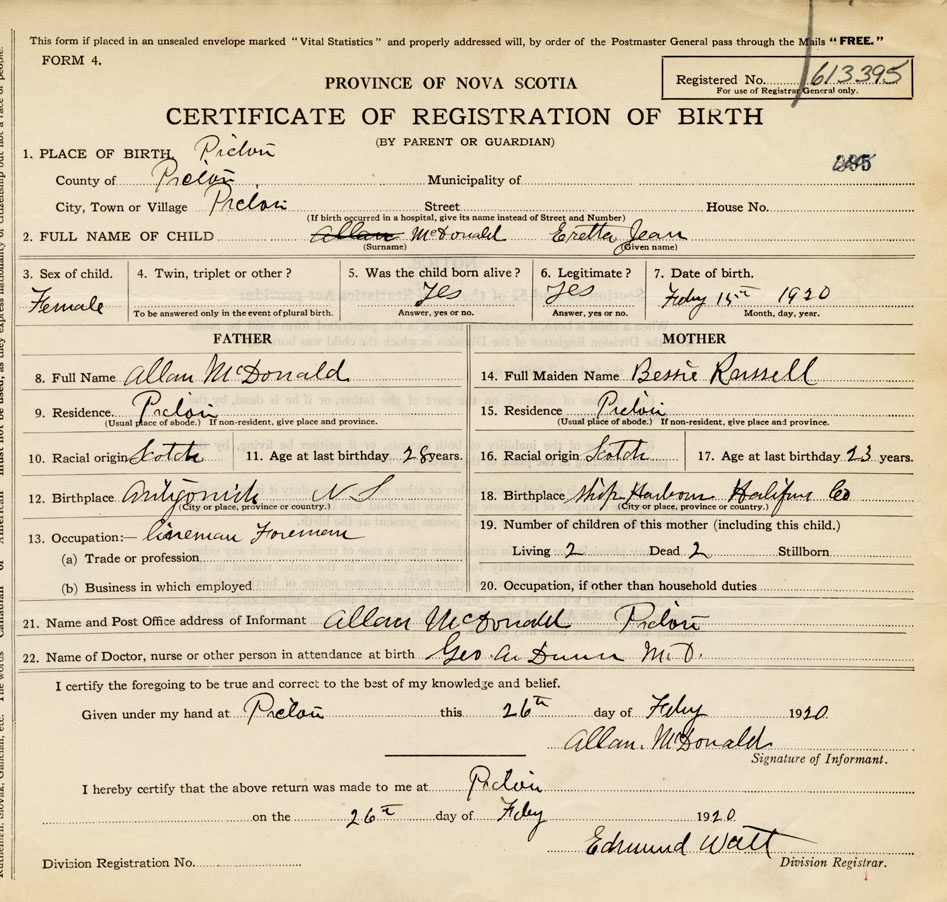 This form if placed in an unsealed envelope marked "Vital Statistics" and properly addressed will, by order of the Postmaster General pass through the Mails "FREE."
FORM 4.
Registered No. 613395
For use of Registrar General only.
PROVINCE OF NOVA SCOTIA
CERTIFICATE OF REGISTRATION OF BIRTH
(BY PARENT OR GUARDIAN)
1. PLACE OF BIRTH, Pictou
County of Pictou Municipality of
City, Town or Village Pictou Street House No.
(If birth occurred in a hospital, give its name instead of Street and Number)
2. FULL NAME OF CHILD Allan McDonald Eretta Jean
(Surname) (Given name)
3. Sex of child. 4. Twin, triplet or other? 5. Was the child born alive? 6. Legitimate? 7. Date of birth.
Female Yes Yes Feby 15th 1920
To be answered only in the event of plural birth. Answer, yes or no. Answer, yes or no. Month, day, year.
FATHER
8. Full Name Allan McDonald
9. Residence. Pictou
(Usual place of abode.) If non-resident, give place and province.
10. Racial origin Scotch 11. Age at last birthday 28 years.
12. Birthplace Antigonish N S
(City or place, province or country.)
13. Occupation:— Lineman Foreman
(a) Trade or profession
(b) Business in which employed
MOTHER
14. Full Maiden Name Bessie Russell
15. Residence Pictou
(Usual place of abode.) If non-resident, give place and province.
16. Racial origin Scotch 17. Age at last birthday 23 years.
18. Birthplace Ship Harbour Halifax Co
(City or place, province or country.)
19. Number of children of this mother (including this child.)
Living 2 Dead 2 Stillborn
20. Occupation, if other than household duties
21. Name and Post Office address of Informant Allan McDonald Pictou
22. Name of Doctor, nurse or other person in attendance at birth Geo Dunn M.D.
I certify the foregoing to be true and correct to the best of my knowledge and belief.
Given under my hand at Pictou this 26th day of Feby 1920.
Allan McDonald
Signature of Informant.
I hereby certify that the above return was made to me at Pictou
on the 26th day of Feby 1920
Edmund Watt
Division Registration No. Division Registrar.